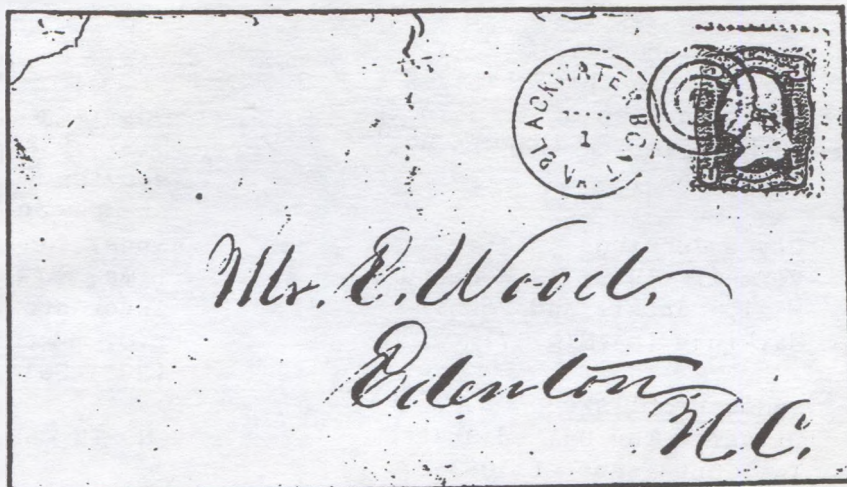 BLACKWATER BOAT. VA
1
Mr. E. Wood,
Edenton,
N.C.